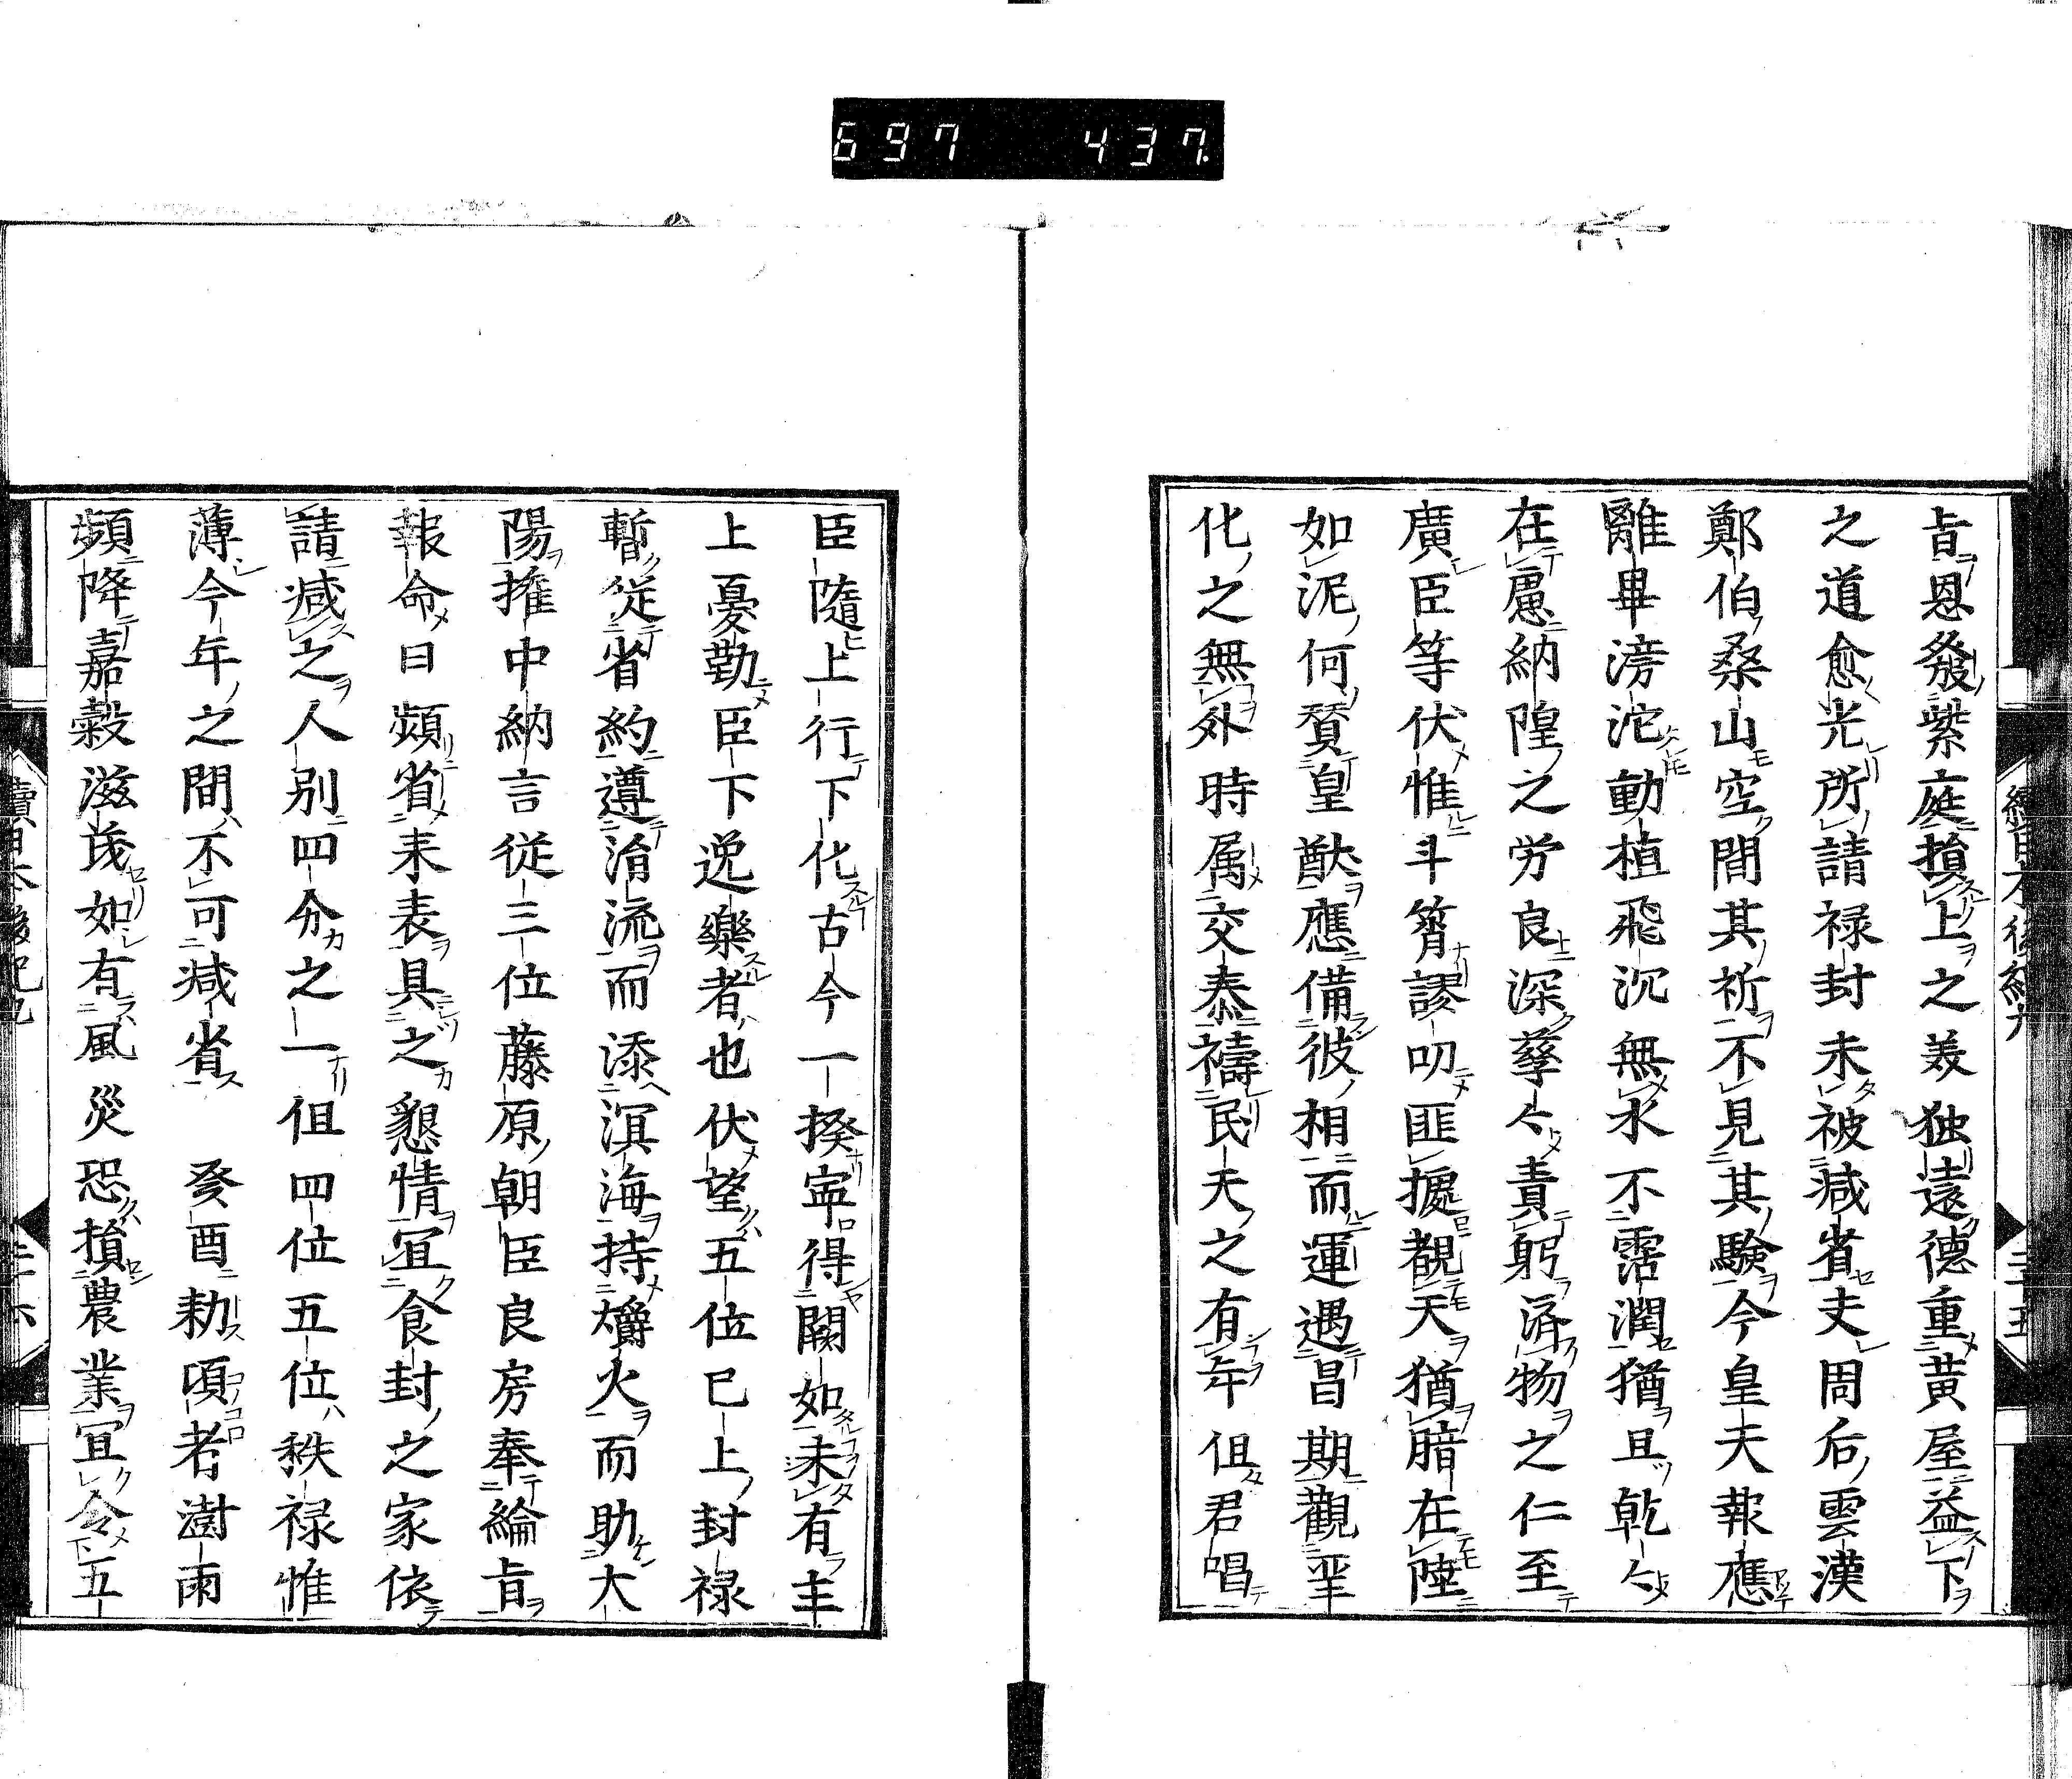 697 437.
旨恩發紫庭損上之美独遠德重黃屋益下
之道愈光所請禄封未被減省夫周后雲漢
鄭伯桑山空間其祈不見其驗今皇天報應
離畢滂沱動植飛沉無水不霑潤猶且乹々
在慮納隍之労良深孳々責躬済物之仁至
廣臣等伏惟斗筲謬叨匪據覩天猶暗在陸
如泥何賛皇猷應備彼相而運遇昌期觀平
化之無外時属交泰禱民天之有年但君唱
臣隨上行下化古今一揆寧得闕如未有主
上憂勤臣下逸樂者也伏望五位已上封禄
暫從省約遵治流而添溟海持爝火而助大
陽權中納言從三位藤原朝臣良房奉綸旨
報命曰頻省来表具之懇情宜食封之家依
請減之人別四分之一但四位五位秩禄惟
薄今年之間不可減省 癸酉勅頃者澍雨
頻降嘉穀滋茂如有風災恐損農業宜令五